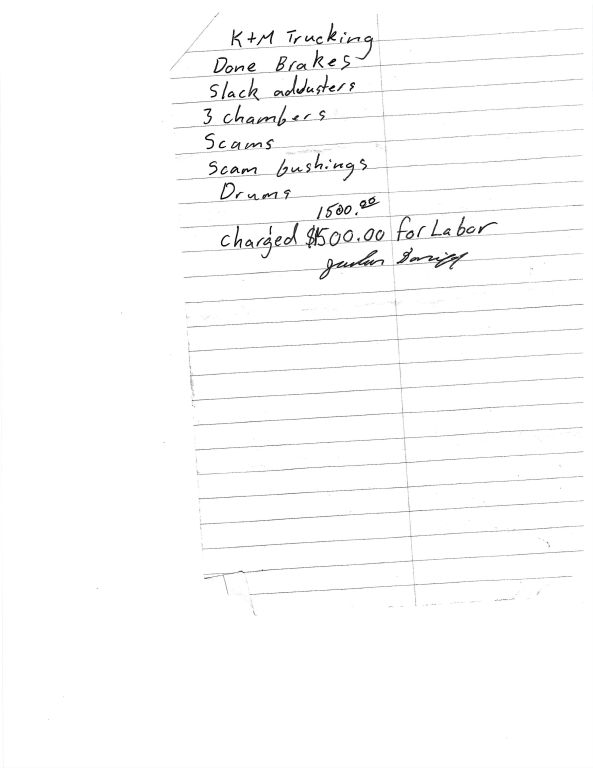 K+M Trucking
Done Brakes
Slack addusters
3 chambers
Scams
Scam bushings
Drums
1500.00
charged $1500.00 for Labor